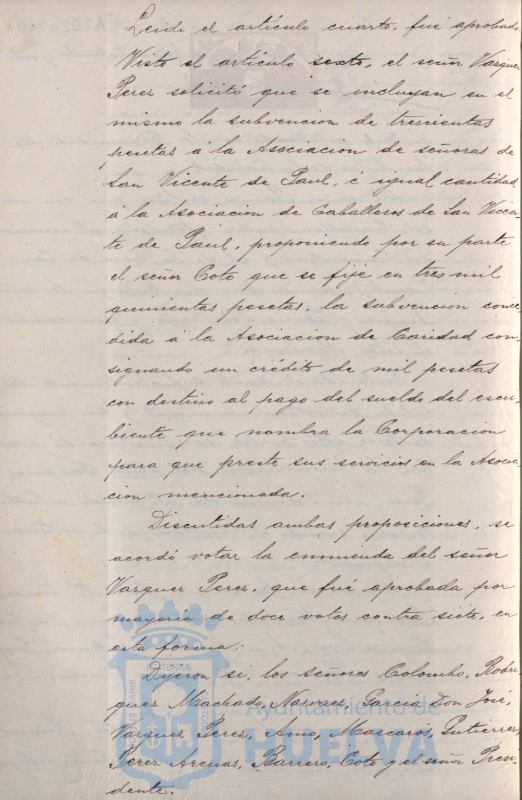 Leido el artículo cuarto, fué aprobado.
Visto el artículo sexto, el señor Vazquez
Perez solicitó que se incluyan en el
mismo la subvencion de trescientas
pesetas á la Asociacion de señoras de
San Vicente de Paul, é igual cantidad
á la Asociacion de Caballeros de San Vicen-
te de Paul, proponiendo por su parte
el señor Coto que se fije en tres mil
quinientas pesetas, la subvencion conce-
dida á la Asociacion de Caridad con-
signando un crédito de mil pesetas
con destino al pago del sueldo del escri-
biente que nombra la Corporacion
para que preste sus servicios en la Asocia-
cion mencionada.
Discutidas ambas proposiciones, se
acordó votar la enmienda del señor
Vazquez Perez, que fué aprobada por
mayoría de doce votos contra siete, en
esta forma:
Dijeron si, los señores Colombo, Rodri-
guez Machado, Narvaes, Garcia Don José,
Vazquez Perez, Amo, Mascarós, Gutierrez,
Perez Arenas, Barrero, Coto y el señor Presi-
dente.
Ayuntamiento de
HUELVA